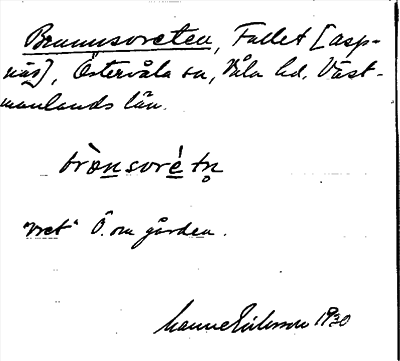 Brunnsvreten, Fallet [Asp-
näs], Östervåla sn, Våla hd. Väst-
manlands län.
brònsvrètn
"vret" Ö. om gården.
Manne Eriksson 1930